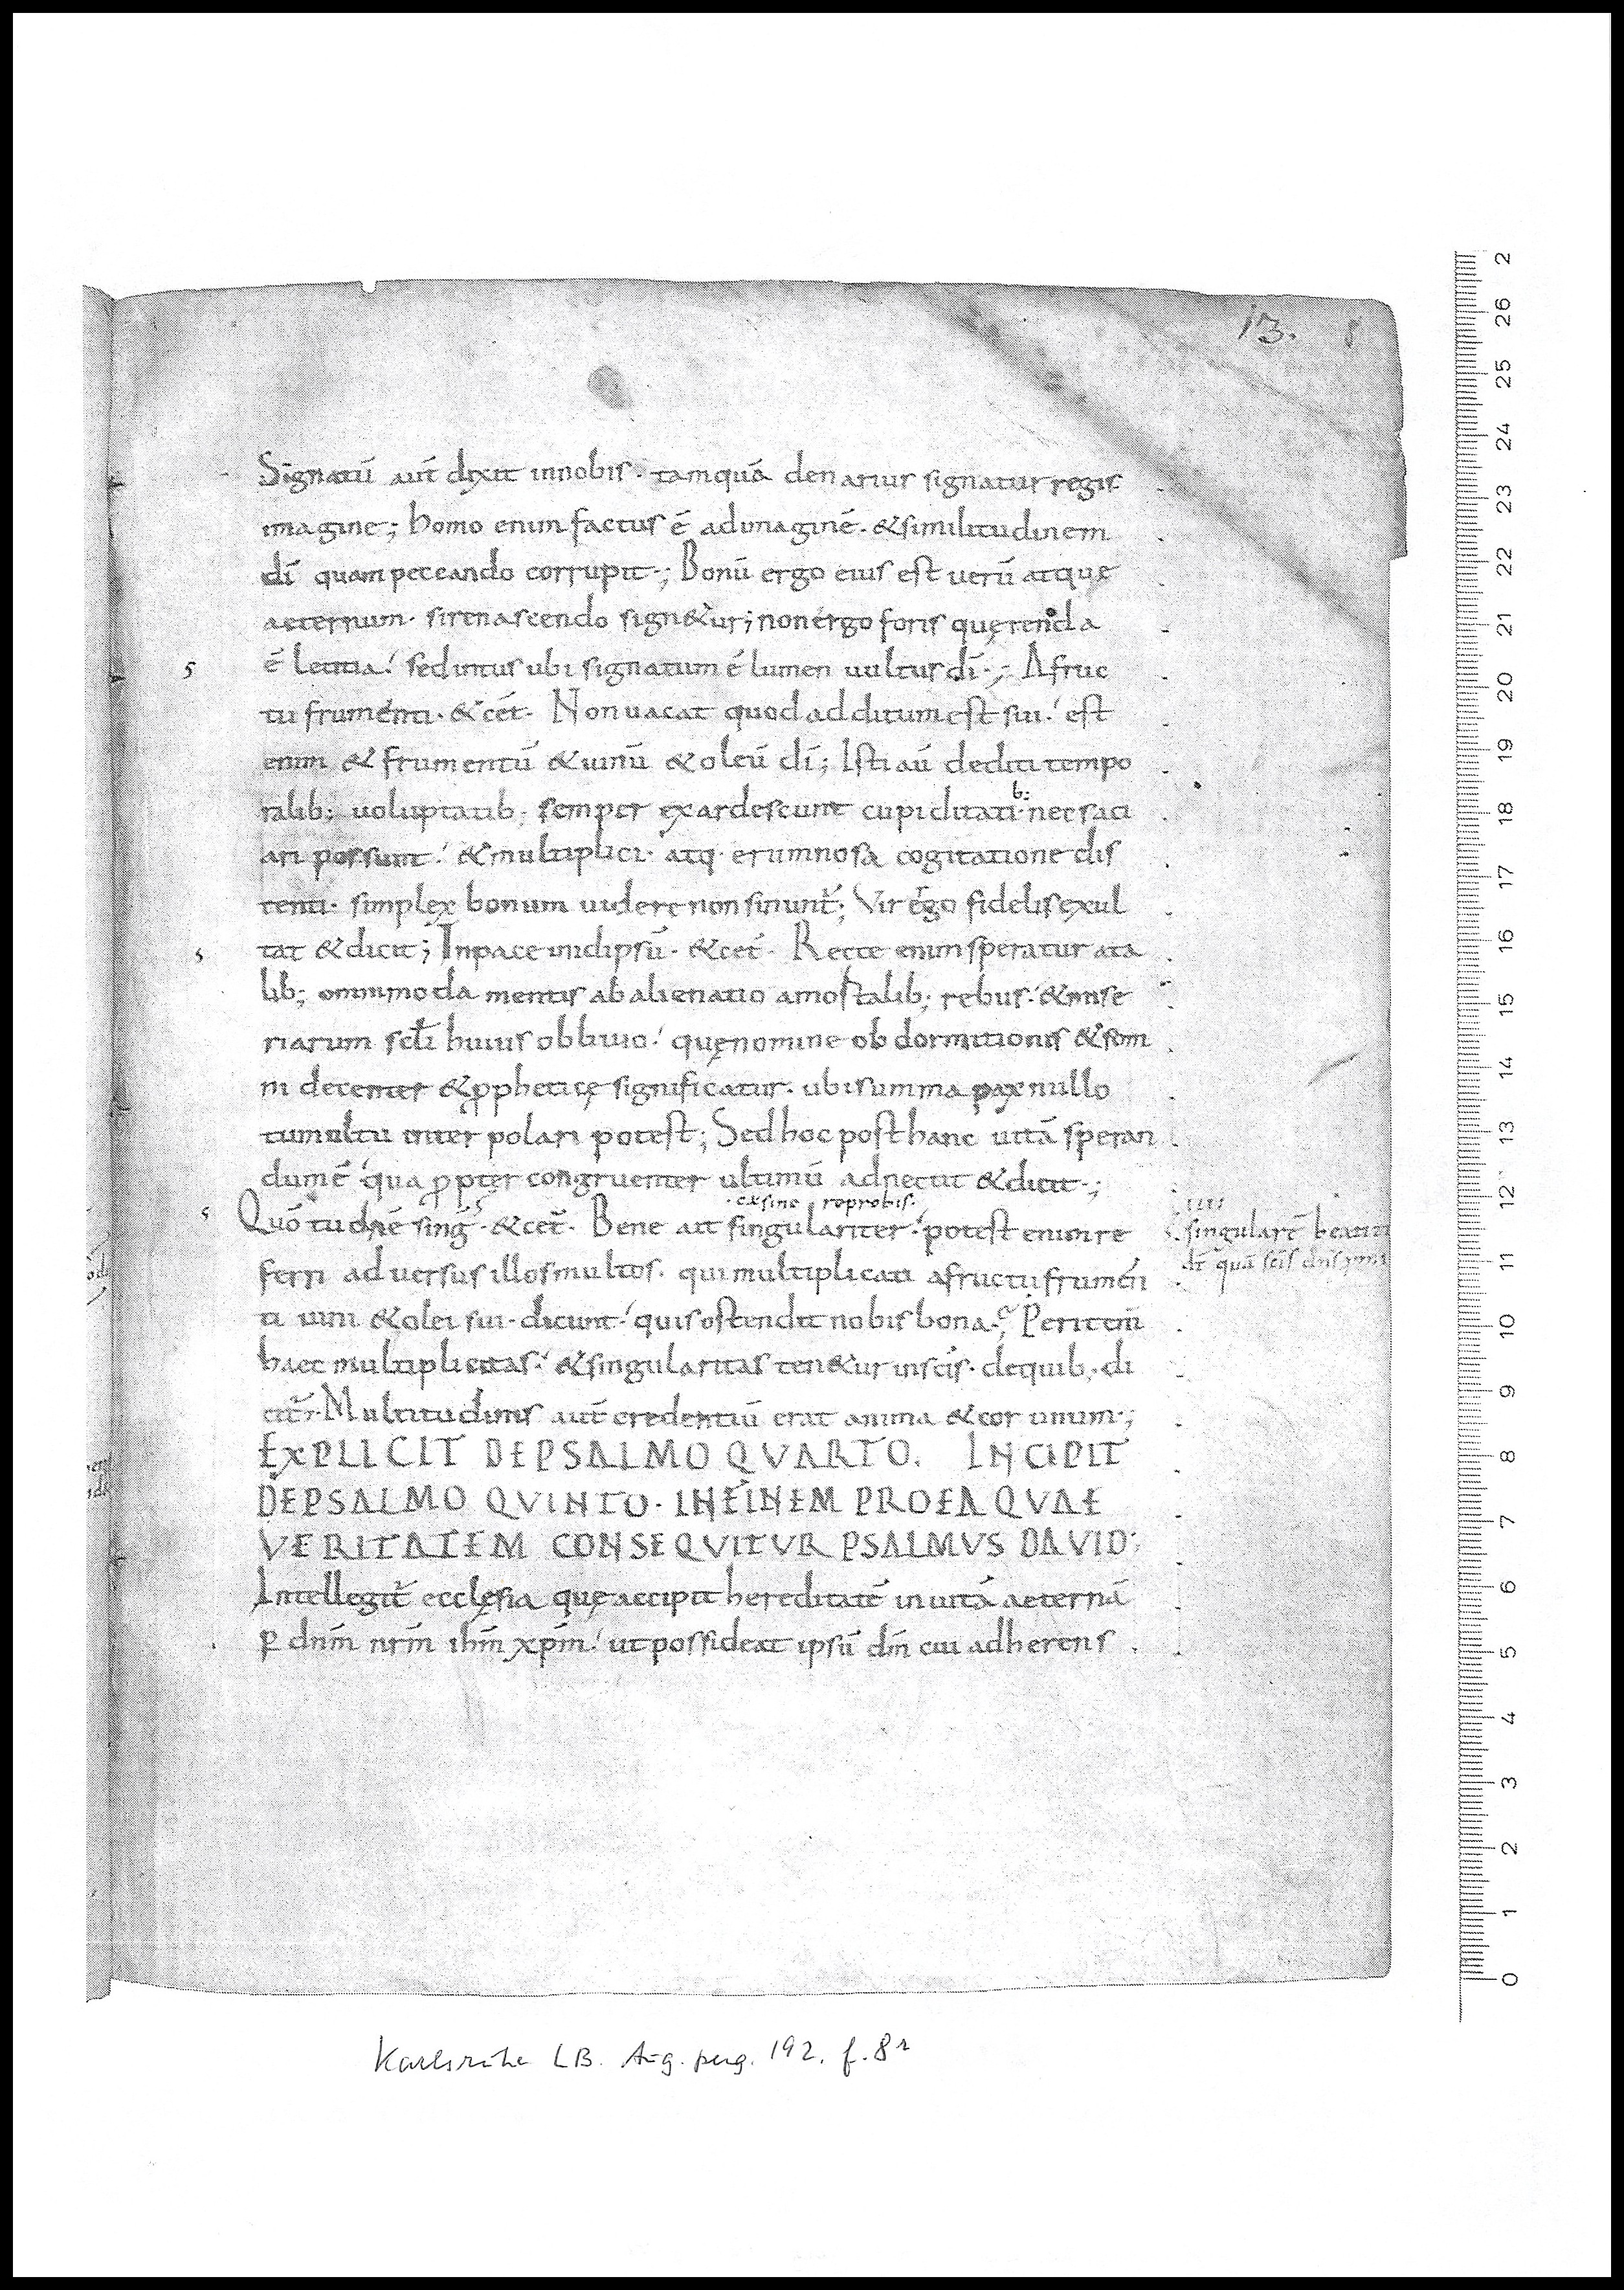 13.
Signatū aut̄ dixit innobis · tamquā denarius signatur regis
imagine; homo enim factus ē adimaginē · &similitudinem
dī quam peccando corrupit ·; Bonū ergo eius est uerū atque
aeternum · sirenascendo sign&ur; non ergo foris querenda
5 ē letitia! sedintus ubi signatum ē lumen uultus dī ·; A fruc
tu frumenti · &cēt · Non uacat quod additum est sui! est
enim & frumentū &uinū &oleū dī; Isti aū dediti tempo
b;
ralib; uoluptatib; semper exardescunt cupiditati · nec saci
ari possunt! &multiplici · atq · erumnosa cogitatione dis
tenti · simplex bonum uidere non sinunt̄; Vir ergo fidelis exul
tat &dicit; Inpace inidipsū · &cēt · Recte enim speratur ata
lib; ommimoda mentis ab alienatio amortalib; rebus! &mise
riarum sclī huius obliuio! quę nomine ob dormitionis &som
ni decenter &pphetice significatur · ubi summa pax nullo
tumultu inter polari potest; Sed hoc post hanc uitā speran
dum ē! qua propter congruenter ultimū adnectit &dicit ·;
· exsine reprobis ·
Quō tu dn̄e sinḡ · &cet̄ · Bene ait singulariter! potest enim re
ferri aduersus illos multos · qui multiplicati a fructu frumen
ti uini &olei sui · dicunt! quis ostendit nobis bona? Perit enī
haec multiplicitas! &singularitas ten&ur inscīs · dequib; di
cit̄ · Multitudinis aut̄ credentiū erat anima &cor unum ·;
EXPLICIT DEPSALMO QVARTO. INCIPIT
DEPSALMO QVINTO · INFINEM PROEA QVAE
VERITATEM CONSEQVITVR PSALMVS DAVID:
Intellegit̄ ecclesia quę accipit hereditatē inuitā aeternā
p dn̄m nr̄m ihm̄ xpm̄! ut possideat ipsū dm̄ cui adherens
singularē
quā scīs
Karlsruhe LB. Aug. perg. 192. f. 8r
0 1 2 3 4 5 6 7 8 9 10 11 12 13 14 15 16 17 18 19 20 21 22 23 24 25 26 2